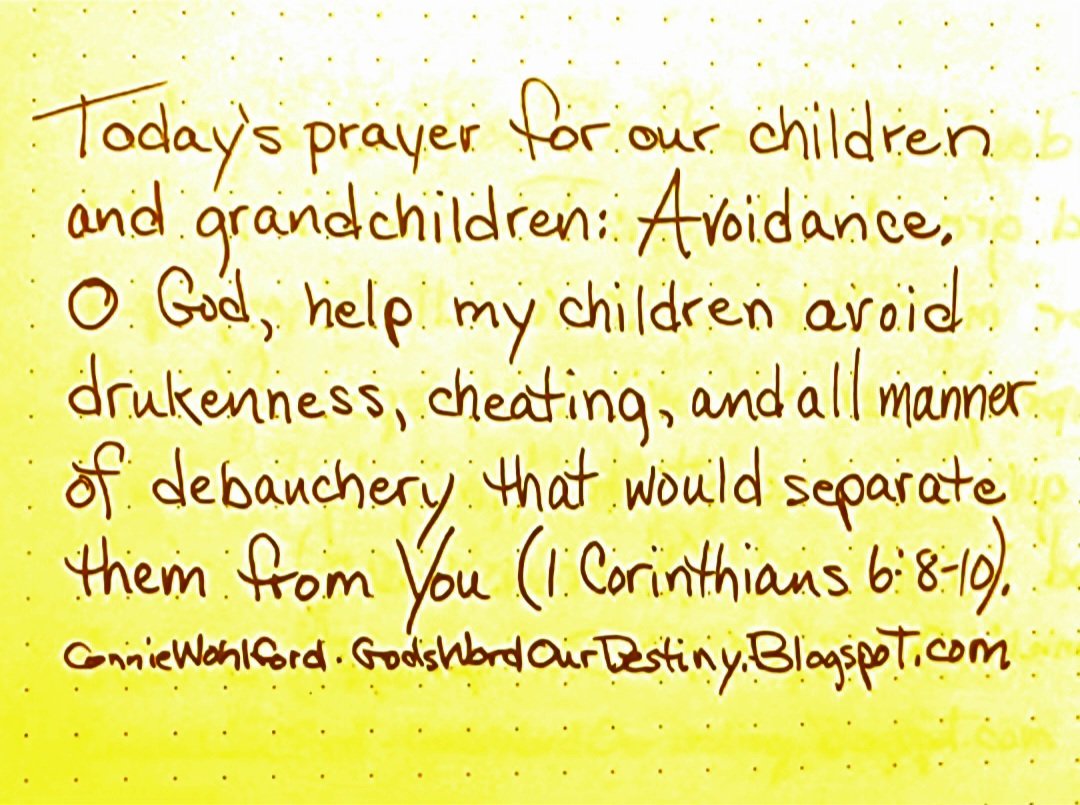 Today's prayer for our children
and grandchildren: Avoidance.
O God, help my children avoid
drukenness, cheating, and all manner
of debauchery that would separate
them from You (1 Corinthians 6:8-10).
ConnieWohlford. GodsWordOurDestiny.Blogspot.com